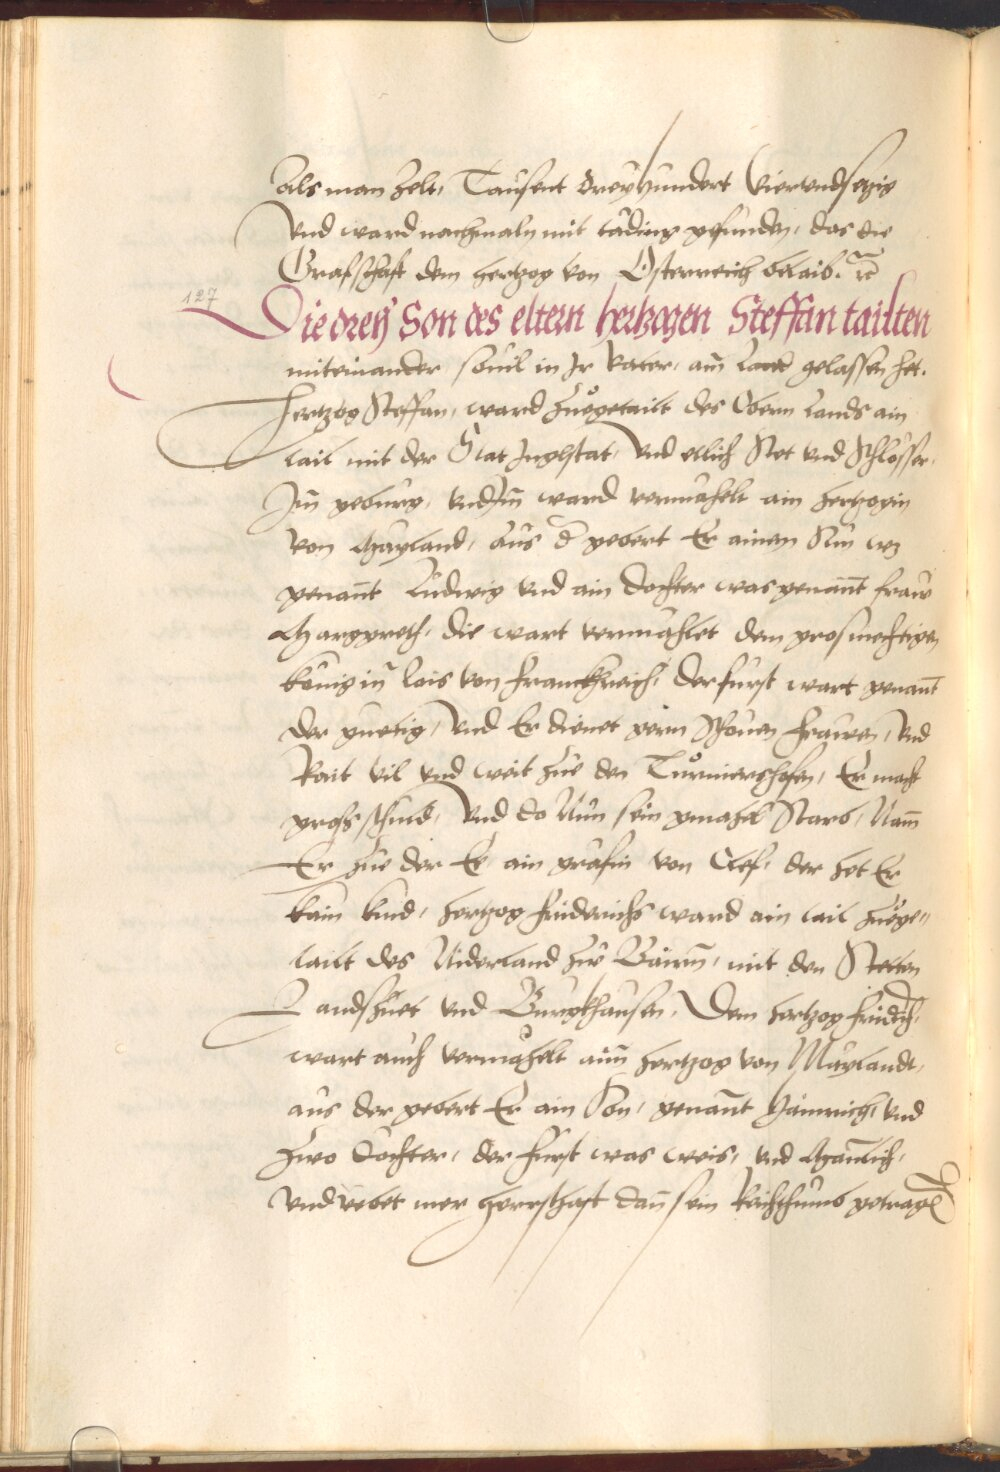 Als man zelt, Tausent dreyhundert Vierundsechzig
Vnd ward nachmaln mit täding gefunden, das die
Grafschaft dem hertzog von Österreich belaib. rc̃
127
Die dreÿ Son des eltern hertzogen Steffan tailten
miteinander souil in Jr vater, am̃ Land gelassen het.
Hertzog Steffan, ward zuegetailt des Obern Lands ain
tail mit der Stat Inglstat, Vnd etlich Stet vnd Schlösser,
Im̃ gebürg, vnd Im̃ ward vermähelt ain hertzogin
von Mayland, aus d' gebert Er ainen Sun
genan̄t Ludwig vnd ain dochter was genan̄t fraw
Margreth, die wart vermählet dem grosmechtigen
könig lois von Franckhreich, der fürst wart genan̄t
der guetig, Vnd Er dienet gern schonen frawen, Vnd
Rait vil vnd weit zue den Turniershofen, Er macht
gross schuld, Vnd do Nun sein gmahel Starb, Nam̃
Er zue der Ee ain gräfin von Clef, der het Er
kain kind, hertzog Friderichs ward ain tail zuege„
tailt des Niderland zue Bairn̄, mit den Stetten
Landshuet vnd Burgkhausen, Dem hertzog fridrich,
wart auch vermahelt ain̄ hertzog von Maylandt,
aus der gebert Er ain Son, genan̄t Hainrich, vnd
zwo dochter, der fürst was weis, vnd Man̄lich,
vnd vebet mer herrschaft dan̄ sein Reichthumb